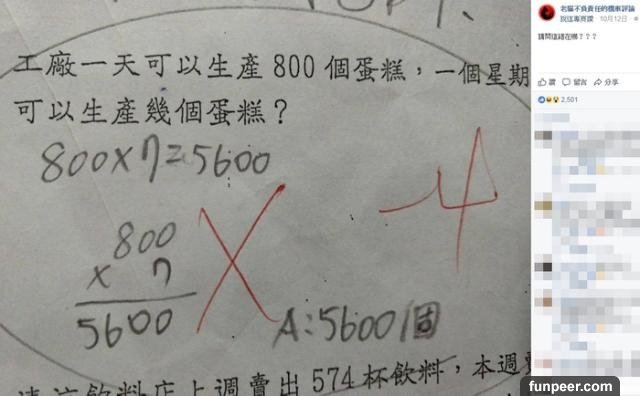 工廠一天可以生產800個蛋糕，一個星期
可以生產幾個蛋糕？
800×7=5600
800
× 7
5600
-4
A:5600個
飲料店上週賣出574杯飲料，本週賣
10月12日
請問這錯在哪？？？
讚 留言 分享
2,501
funpeer.com